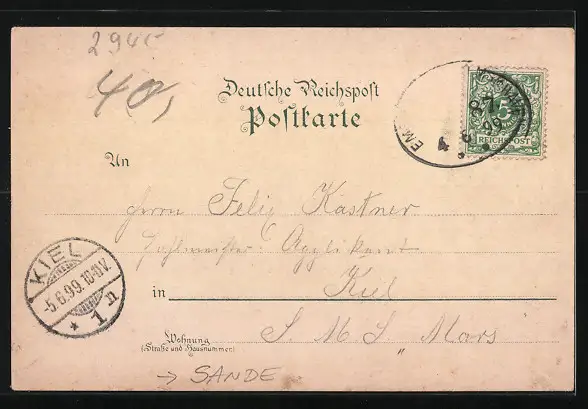 294
40,
Deutsche Reichspost
Postkarte
EMS
87
4 6 99
5
REICHSPOST
An
Herrn Felix Kastner
Zahlmeister-Applikant
KIEL
-5.6.99.10-11V.
* 1 n
in Kiel
Wohnung
(Straße und Hausnummer)
S. M. S. „Mars"
→ SANDE